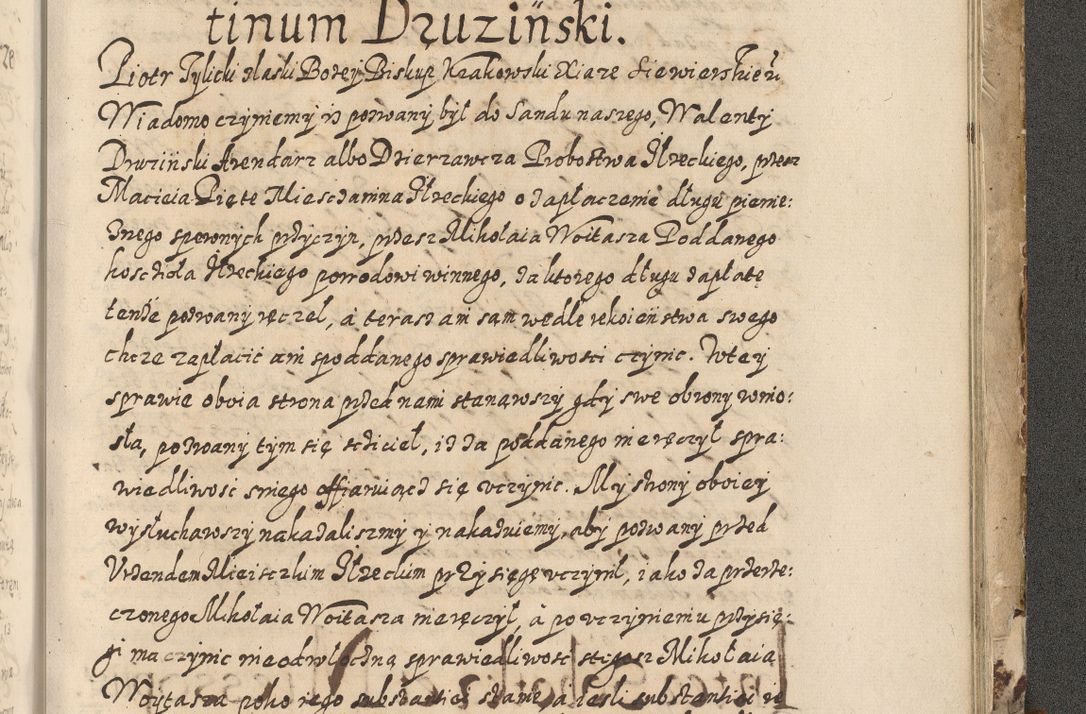 tinum Druziński.
Piotr Tylicki z łaski Bożej Biskup Krakowski Xiąże Siewierskie u
Wiadomo czyniemy iż pozwany był do Sandu naszego, Walenty
Druziński Arendarz albo Dzierzawcza Probostwa Iłzeckiego, przez
Macieia Pięte Miesczanina Iłzeckiego o zapłaczenie długu pienie:
żnego spewnych przyczyn, przesz Mikołaia Woitasza Poddanego
kosczioła Iłzeckiego powodowi winnego, za ktorego długu zapłatę
tenże pozwany ręczeł, a teraz ani sam wedle rekoieństwa swego
chcze zapłacić ani spoddanego sprawiedliwości czynic. Wtey
sprawie oboia strona przed nami stanąwszy gdy swe obrony wnio:
sła, pozwany tym się sczicieł, iż za poddanego nie ręczył spra:
wiedliwość sniego offiaruiącz się vczynic. My strony oboiey
wysłuchawszy nakazalismy y nakazuiemy, aby pozwany przed
Vrzendem Mieisczkim Iłzeckim przysięgę vczynił, iako za przerze:
czonego Mikołaia Woitasza nie ręczył, a po vczynieniu przysię:
gi ma czynic nieodwłoczną sprawiedliwość stegosz Mikołaia
Woytasza poko iego substantiei stanie, a iesli substantiei ie